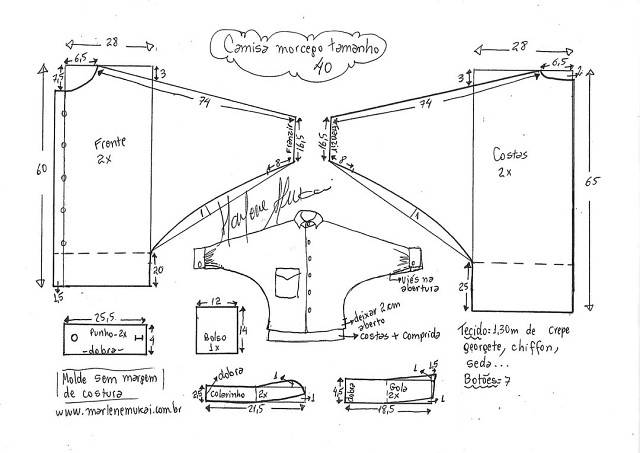 Camisa morcego tamanho
40
28
6,5
7,5
3
74
60
Frente
2x
Franzir
16,5
8
1
20
1,5
28
6,5
2
3
74
Franzir
16,5
8
1
Costas
2x
65
25
Marlene Mukai
viés na
abertura
deixar 2cm
aberto
costas + comprida
25,5
Punho - 2x
- dobra -
4
12
14
Bolso
1x
Molde sem margem
de costura
www.marlenemukai.com.br
dobra
2,5
Colarinho
2x
1
1
21,5
4,5
dobra
Gola
2x
1
1,5
1
18,5
Tecido: 1,30m de crepe
georgete, chiffon,
seda...
Botões = 7